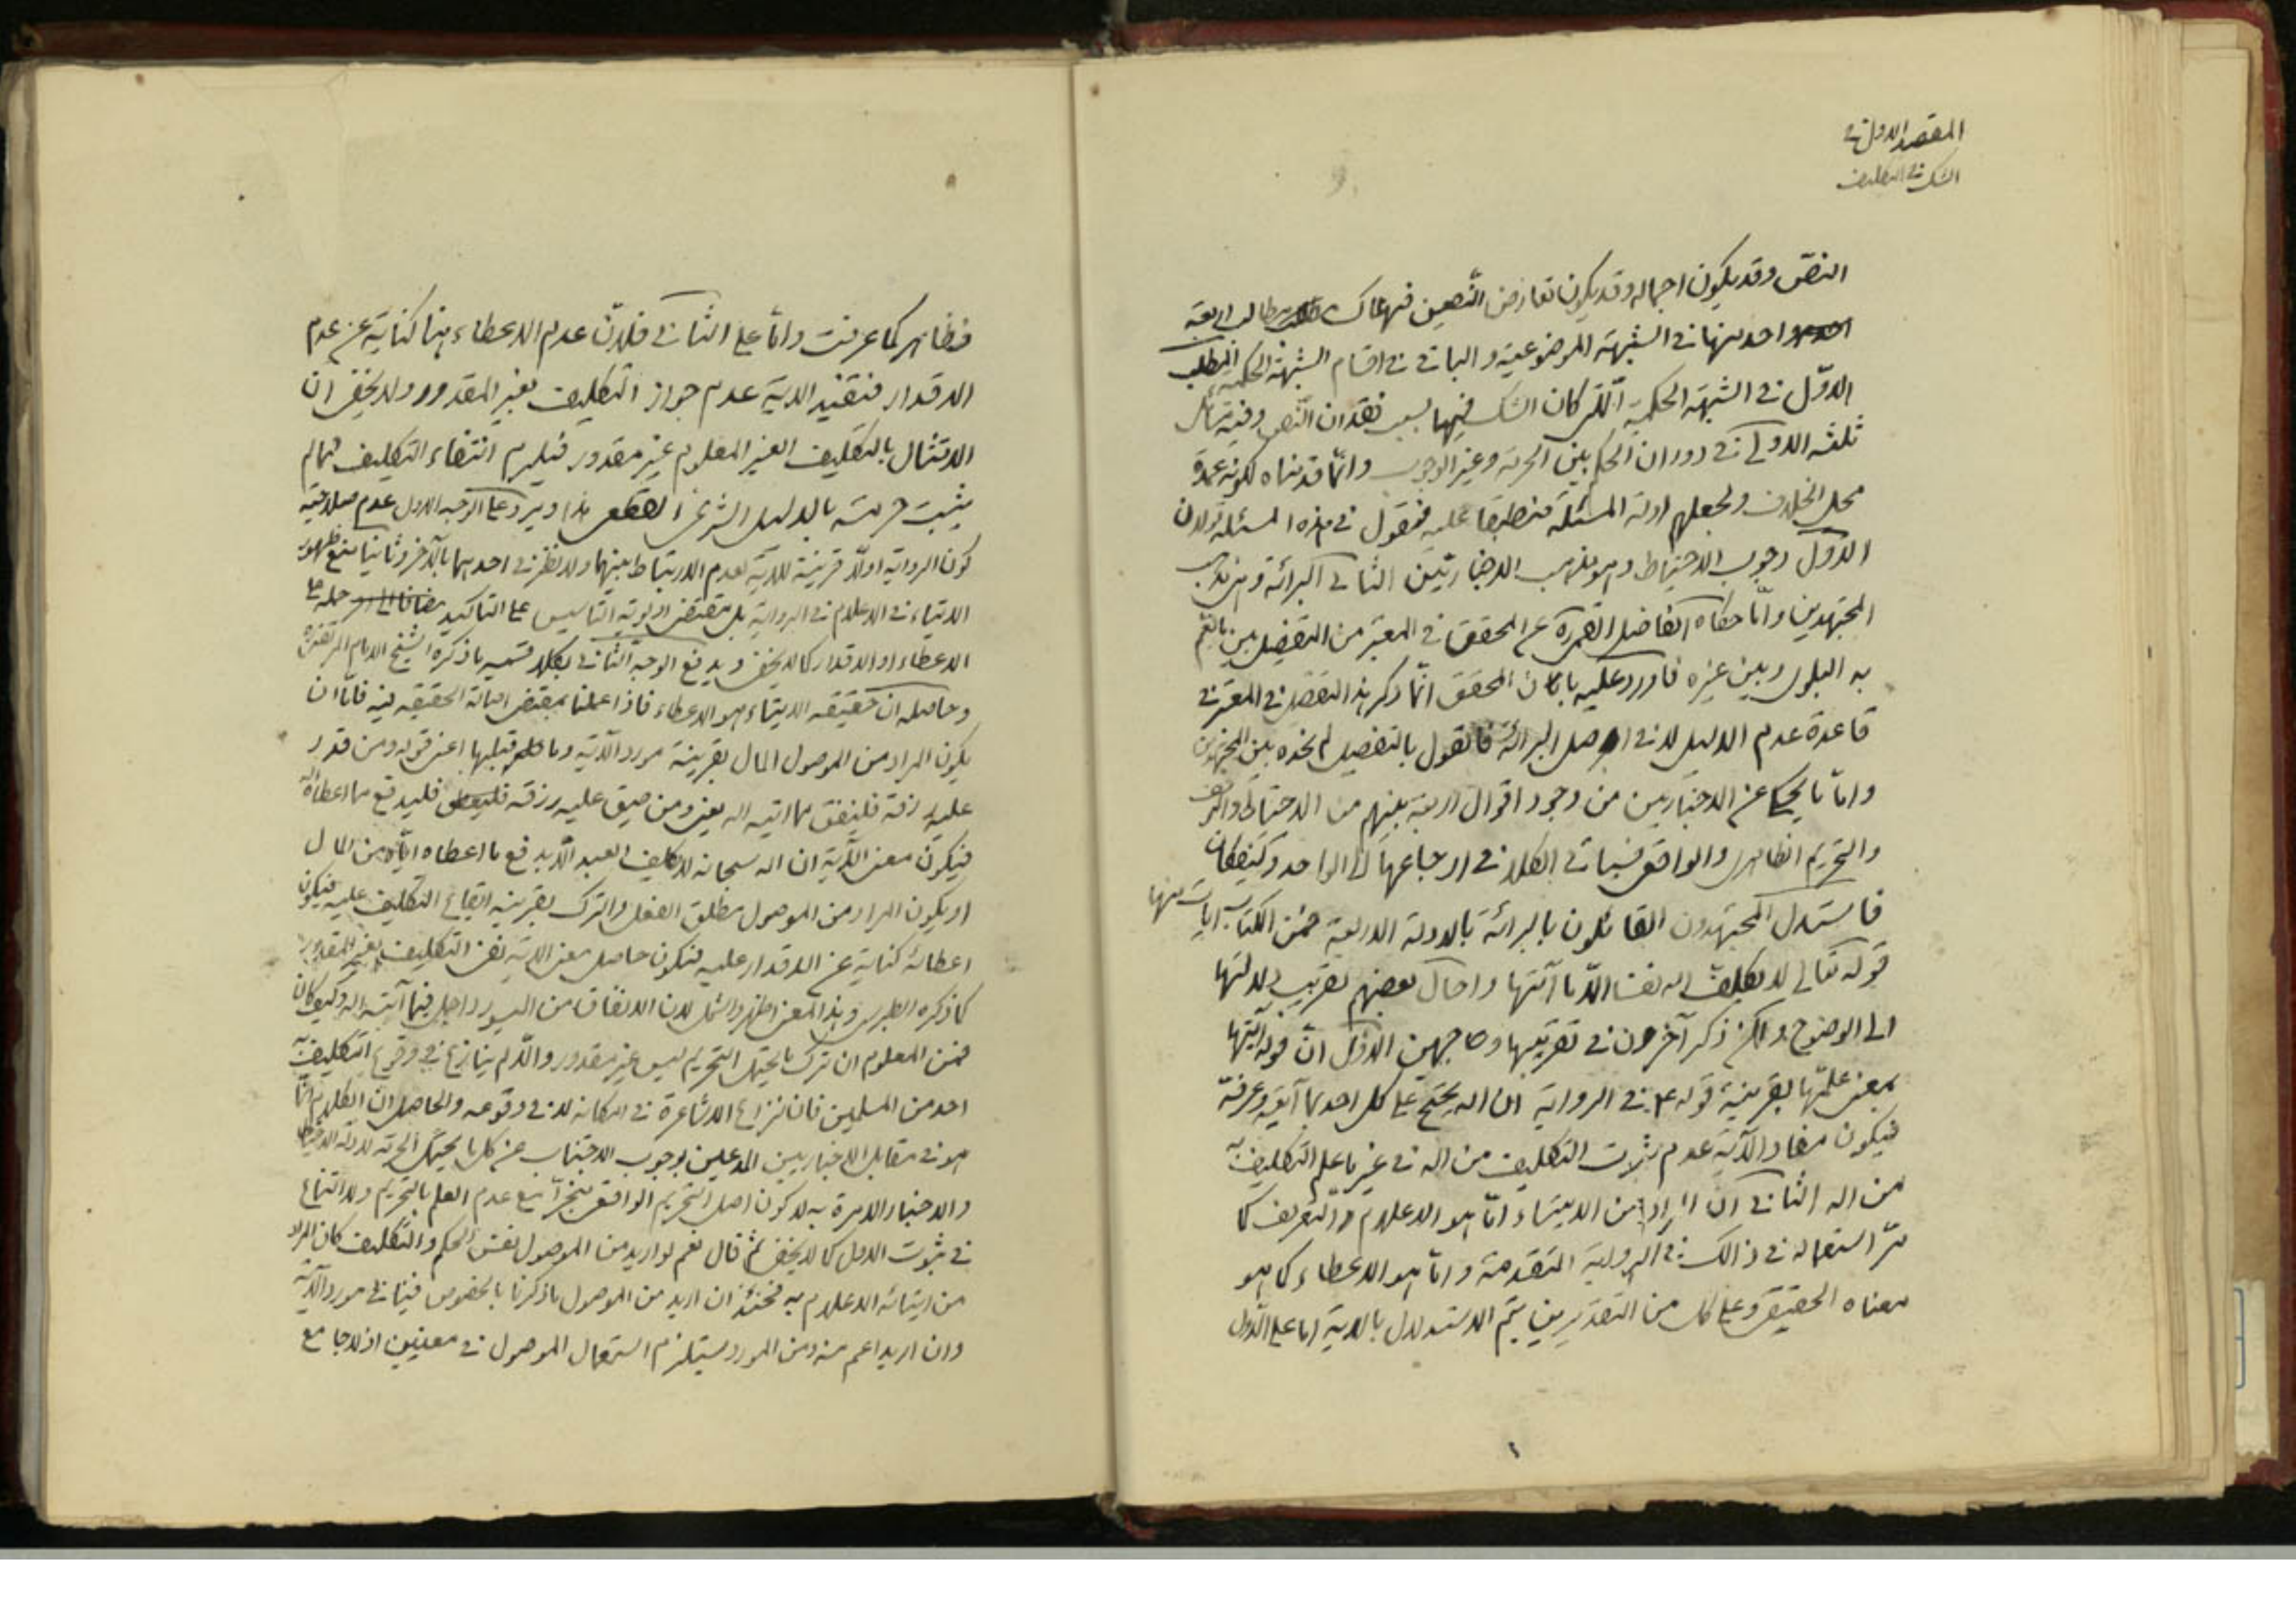 المقصد الاول في
الشك في التكليف
النص وقد يكون اجماله وقد يكون تعارض النصين فهناك مطالب اربعة
واحد منها في الشبهة الموضوعية والباقي في اقسام الشبهة الحكمية المطلب
الاول في الشبهة الحكمية التي كان الشك فيها بسبب فقدان النص وفيه مسائل
ثلثه الاولى في دوران الحكم بين الحرمة وغير الوجوب وانما قدمناه لكونه عمدة
محل الخلاف ولجعلهم ادلة المسئلة منطبقا عليه فنقول في هذه المسئلة قولان
الاول وجوب الاحتياط وهو مذهب الاخباريين الثاني البرائة وهو مذهب
المجتهدين وامّا ما حكاه الفاضل القمي ره عن المحقق في المعتبر من التفصيل بين ما يعم
به البلوى وبين غيره فاورد عليه بان المحقق انّما ذكر هذا التفصيل في المعتبر في
قاعدة عدم الدليل لا في اصل البرائة فالقول بالتفصيل لم نجده بين المجتهدين
وامّا ما يحكى عن الاخباريين من وجود اقوال اربعة بينهم من الاحتياط والتوقف
والتحريم الظاهرى والواقعى فسياتي الكلام في ارجاعها الى الواحد وكيف كان
فاستدل المجتهدون القائلون بالبرائة بالادلة الاربعة فمن الكتاب ايات منها
قوله تعالى لا يكلف الله نفسا الّا ما آتيها واحال بعضهم تقريب دلالتها
الى الوضوح ولكن ذكر آخرون في تقريبها وجهين الاوّل انّ قوله آتيها
بمعنى علمها بقرينة قوله ع في الرواية ان الله يحتج على كل احد بما آتيه وعرفه
فيكون مفاد الآية عدم ثبوت التكليف من الله في غير ما علم التكليف به
من الله الثاني انّ المراد من الايتاء امّا هو الاعلام والتعريف كما
مرّ استعماله في ذالك في الرواية المتقدمة وامّا هو الاعطاء كما هو
معناه الحقيقى وعلى كل من التقديرين يتم الاستدلال بالاية اما على الاول
فظاهر كما عرفت وامّا على الثاني فلانّ عدم الاعطاء هنا كناية عن عدم
الاقدار فتفيد الاية عدم جواز التكليف بغير المقدور ولا يخفى ان
الامتثال بالتكليف الغير المعلوم غير مقدور فيلزم انتفاء التكليف فيما لم
يثبت حرمته بالدليل الشرعى القطعى هذا ويرد على الوجه الاول عدم صلاحية
كون الرواية اولا قرينة للاية لعدم الارتباط بينهما ولا نظر في احدهما بالآخر وثانيا منع ظهور
الايتاء في الاعلام في الرواية بل مقتضى اولوية التاسيس على التاكيد حمله على
الاعطاء او الاقدار كما لا يخفى ويدفع الوجه الثاني بكلا قسميه ما ذكره الشيخ الامام المرتضى ره
وحاصله ان حقيقة الايتاء هو الاعطاء فاذا عملنا بمقتضى اصالة الحقيقة فيه فامّا ان
يكون المراد من الموصول المال بقرينة مورد الآية وما قبلها اعنى قوله ومن قدر
عليه رزقه فلينفق مما اتيه الله يعنى ومن ضيق عليه رزقه فليدفع مما اعطاه الله
فيكون معنى الآية ان الله سبحانه لا يكلف العبد الّا بدفع ما اعطاه ايّاه من المال
او يكون المراد من الموصول مطلق الفعل والترك بقرينة ايقاع التكليف عليه فيكون
اعطائه كناية عن الاقدار عليه فيكون حاصل معنى الاية نفى التكليف بغير المقدور
كما ذكره الطبرسى وهذا المعنى اظهر واشمل لان الانفاق من الميسور داخل فيما آتيه الله وكيف كان
فمن المعلوم ان ترك ما يحتمل التحريم ليس غير مقدور والّا لم ينازع في وقوع التكليف به
احد من المسلمين فان نزاع الاشاعرة في امكانه لا في وقوعه والحاصل ان الكلام انّما
هو في مقابل الاخباريين المدعين بوجوب الاجتناب عن كل ما يحتمل الحرمة لادلة الاحتياط
والاخبار الامرة به لا كون اصل التحريم الواقعى منجزا مع عدم العلم بالتحريم ولا امتناع
في ثبوت الاول كما لا يخفى ثم قال نعم لو اريد من الموصول نفس الحكم والتكليف كان المراد
من ايتائه الاعلام به فحينئذ ان اريد من الموصول ما ذكرنا بالخصوص فينافي مورد الآية
وان اريد اعم منه ومن المورد يستلزم استعمال الموصول في معنيين اذ لا جامع